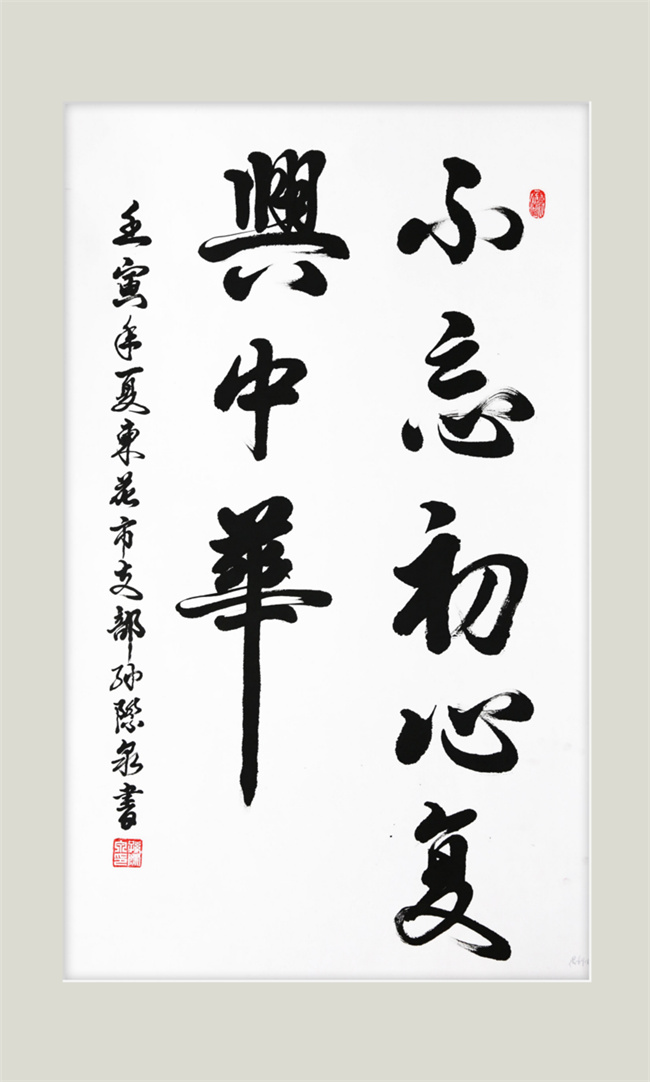 不忘初心复
興中華
壬寅年夏東花市支部孙際泉書